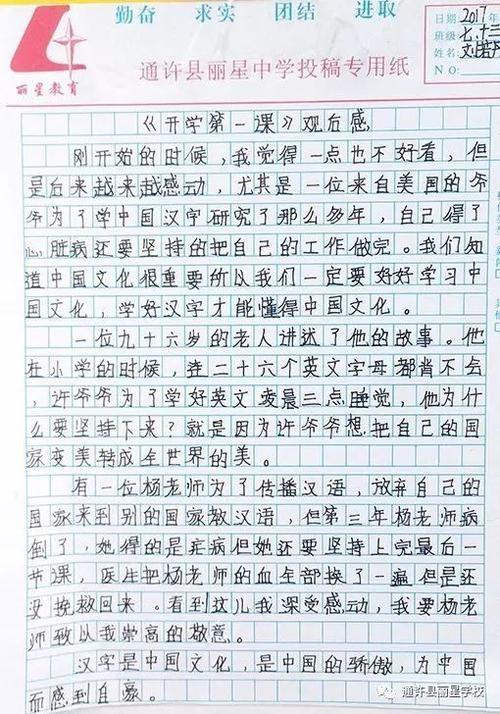 勤奋 求实 团结 进取
丽星教育
通许县丽星中学投稿专用纸
日期 2017年
班级 七.十三
姓名
NO:
《开学第一课》观后感
刚开始的时候，我觉得一点也不好看，但
是后来越来越感动，尤其是一位来自美国的爷
爷为了学中国汉字研究了那么多年，自己得了
心脏病还要坚持的把自己的工作做完。我们知
道中国文化很重要所以我们一定要好好学习中
国文化，学好汉字才能懂得中国文化。
一位九十六岁的老人讲述了他的故事。他
在小学的时候，连二十六个英文字母都背不会
，许爷爷为了学好英文凌晨三点睡觉，他为什
么要坚持下来？就是因为许爷爷想把自己的国
家变美转成全世界的美。
有一位杨老师为了传播汉语，放弃自己的
国家来到别的国家教汉语，但第三年杨老师病
倒了，她得的是疟病但她还要坚持上完最后一
节课，医生把杨老师的血全部换了一遍但是还
没挽救回来。看到这儿我深受感动，我要杨老
师致以我崇高的敬意。
汉字是中国文化，是中国的骄傲，为中国
而感到自豪。
通许县丽星学校